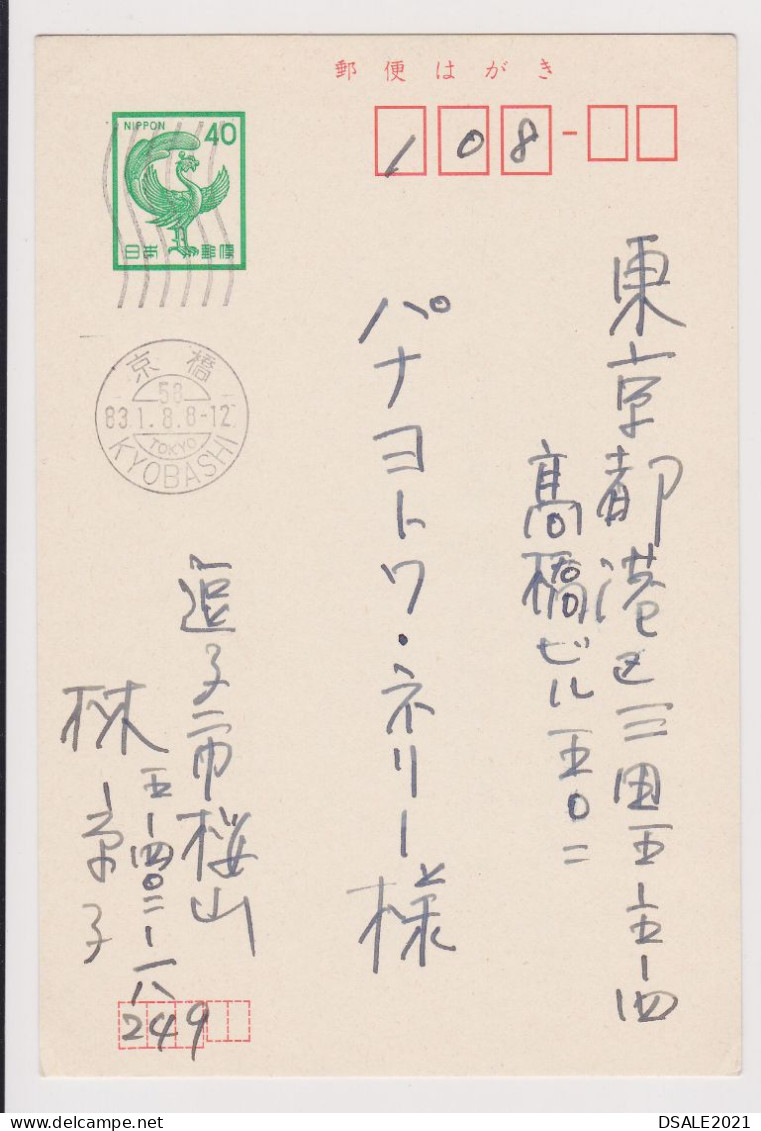 郵便はがき
NIPPON 40
日本郵便
108
京橋
58
83.1.8.8-12
TOKYO
KYOBASHI
東京都港区三田五-五-四
高橋ビル五〇二
パナヨトワ・ネリー様
逗子市桜山
五-四〇二-一八
林京子
249
DSALE2021